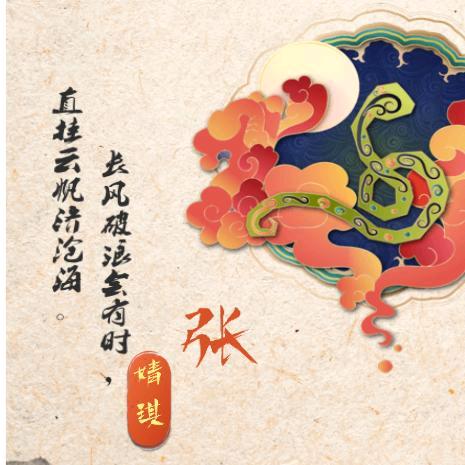 长风破浪会有时，
直挂云帆济沧海。
张
婧琪